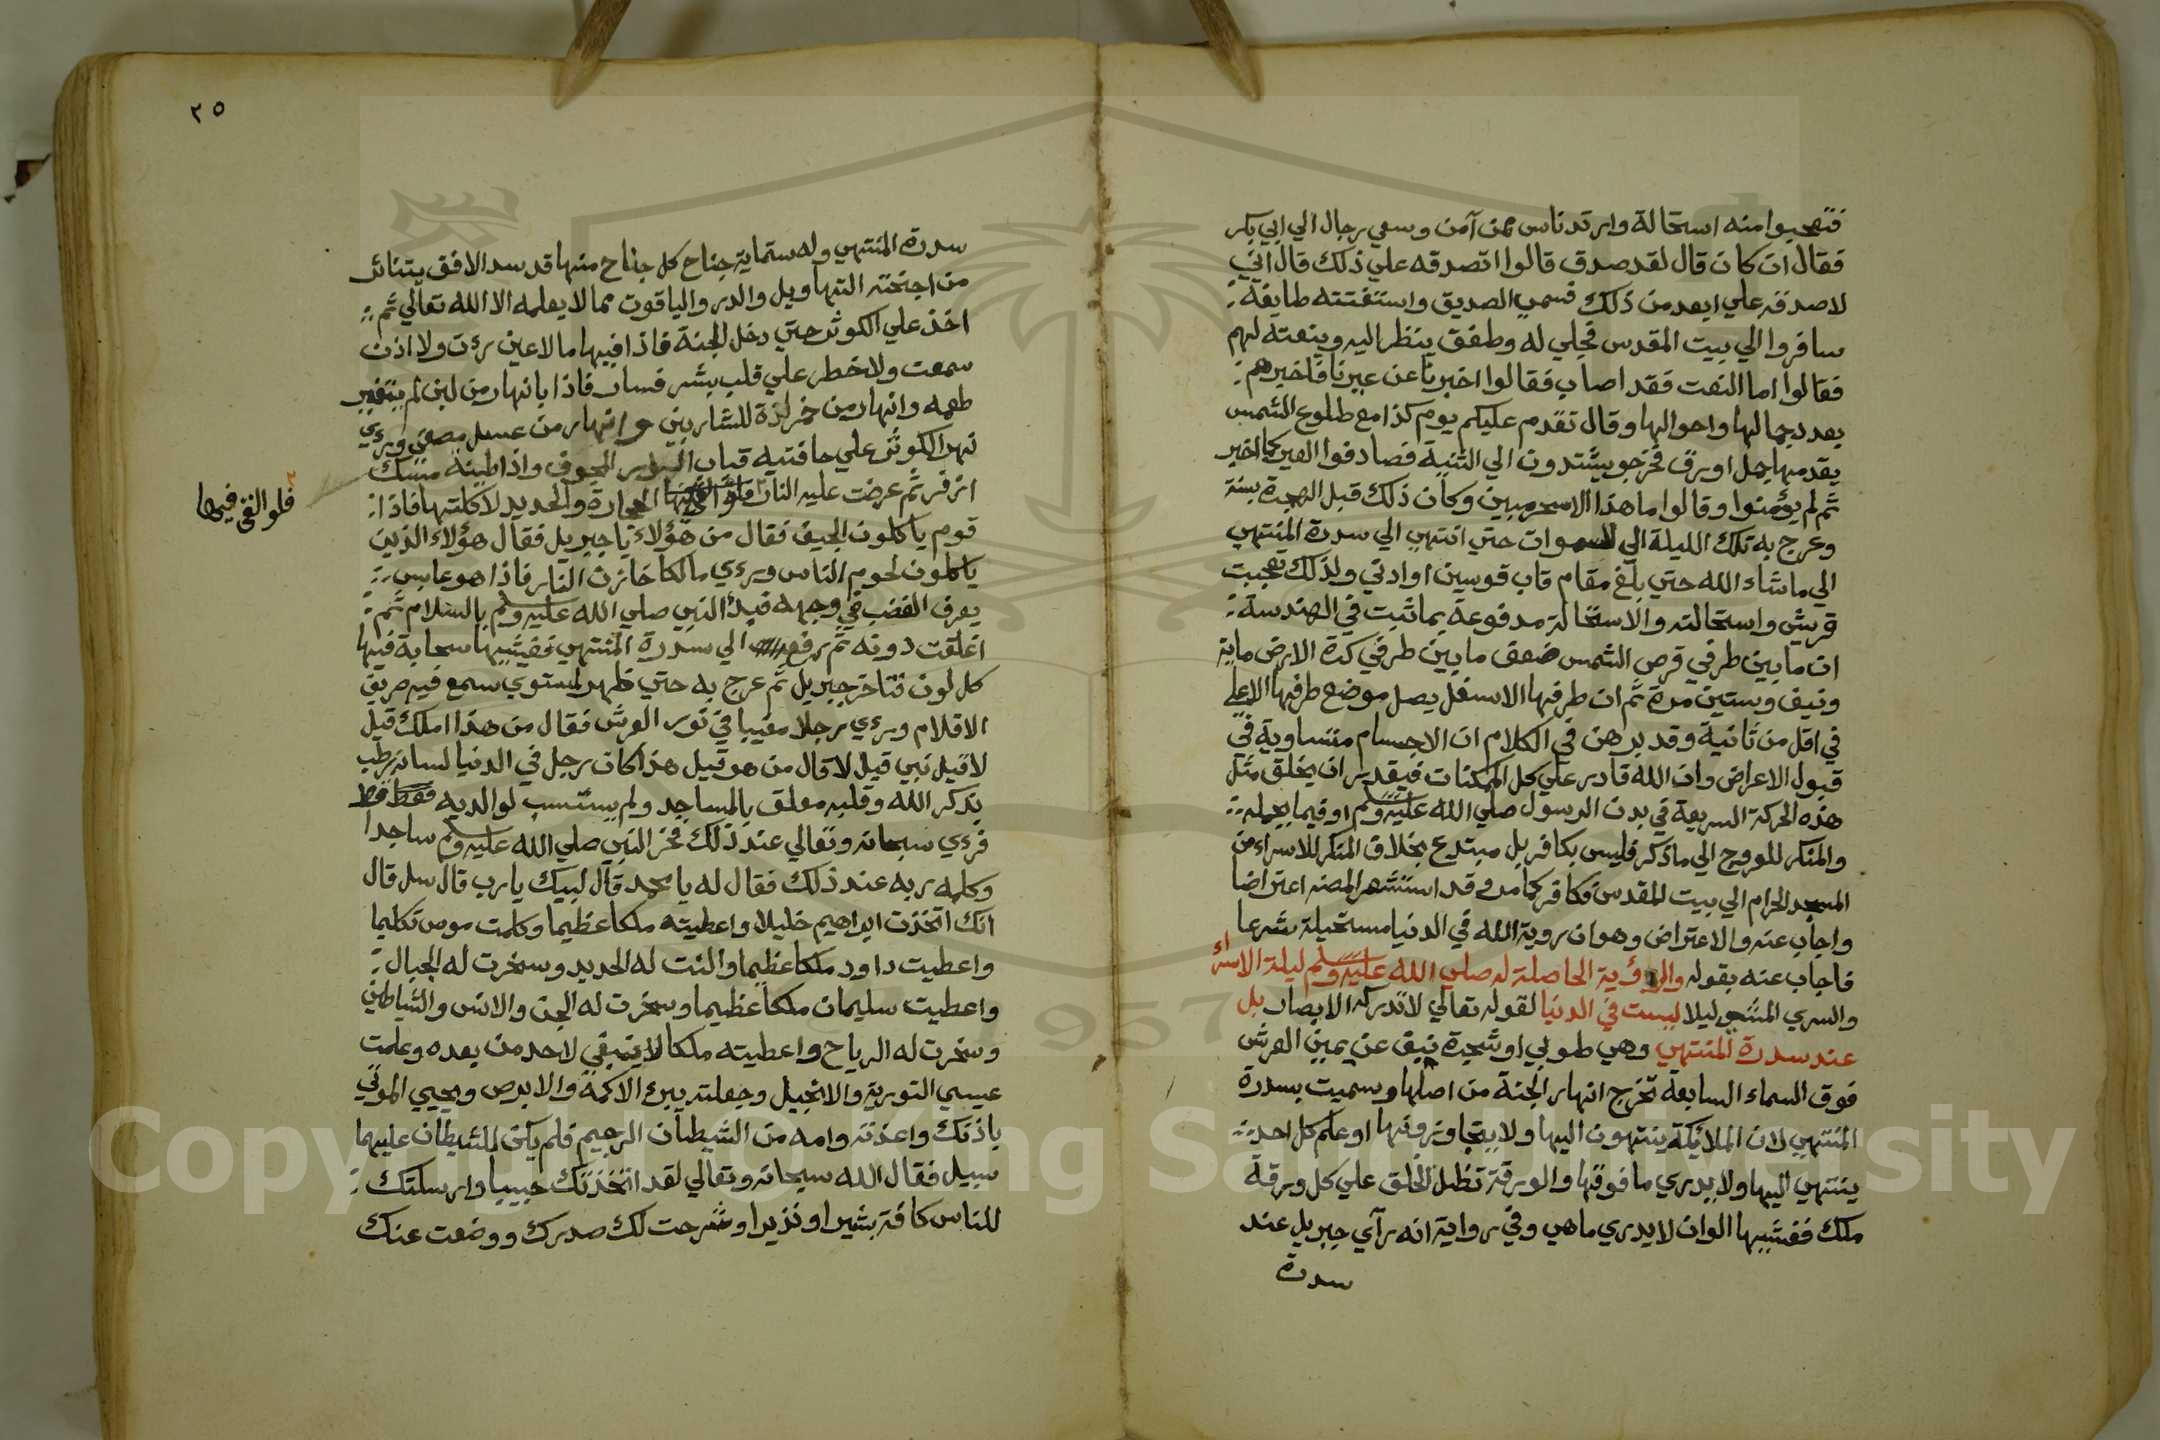 فتعجبوا منه استحالة وارتد ناس ممن آمن وسعي رجال الي ابي بكر
فقال ان كان قال لقد صدق قالوا اتصدقه علي ذلك قال اني
لاصدقه علي ابعد من ذلك فسمي الصديق واستنعتته طايفة
سافروا الي بيت المقدس فجلي له وطفق ينظر اليه وينعته لهم
فقالوا اما النعت فقد اصاب فقالوا اخبرنا عن عيرنا فاخبرهم
بعدد جمالها واحوالها وقال تقدم عليكم يوم كذا مع طلوع الشمس
يقدمها جمل اورق فخرجو يشتدون الي الثنية فصادفوا العير كما اخبر
ثم لم يؤمنوا وقالوا ما هذا الا سحر مبين وكان ذلك قبل الهجرة بسنة
وعرج به تلك الليلة الي السموات حتي انتهي الي سدرة المنتهي
الي ما شاء الله حتي بلغ مقام قاب قوسين او ادني ولذلك تعجبت
قريش واستحالته والاستحالة مدفوعة بما ثبت في الهندسة
ان ما بين طرفي قرص الشمس ضعف ما بين طرفي كرة الارض ماية
ونيف وستين مرة ثم ان طرفها الاسفل يصل موضع طرفها الاعلي
في اقل من ثانية وقد برهن في الكلام ان الاجسام متساوية في
قبول الاعراض وان الله قادر علي كل الممكنات فيقدر ان يخلق مثل
هذه الحركة السريعة في بدن الرسول صلي الله عليه وسلم او فيما يحمله
والمنكر للعروج الي ما ذكر فليس بكافر بل مبتدع بخلاف المنكر للاسراء من
المسجد الحرام الي بيت المقدس فكافر كما مر وقد استشعر المصنه اعتراضا
واجاب عنه والاعتراض وهو ان روية الله في الدنيا مستحيلة شرعا
فاجاب عنه بقوله والرؤية الحاصلة له صلي الله عليه وسلم ليلة الاسراء
والسري المشي ليلا ليست في الدنيا لقوله تعالي لا تدركه الابصار بل
عند سدرة المنتهي وهي طوبي او شجرة نبق عن يمين العرش
فوق السماء السابعة تخرج انهار الجنة من اصلها وسميت بسدرة
المنتهي لان الملائكة ينتهون اليها ولا يتجاوزونها او علم كل احد
ينتهي اليها ولا يدري ما فوقها والورقة تظل الخلق علي كل ورقة
ملك فغشيها الوان لا يدري ما هي وفي رواية انه رآي جبريل عند
سدرة
٢٥
سدرة المنتهي وله ستماية جناح كل جناح منها قد سد الافق يتناثر
من اجنحته التهاويل والدر والياقوت مما لا يعلمه الا الله تعالي ثم
اخذ علي الكوثر حتي دخل الجنة فاذا فيها ما لا عين رءت ولا اذن
سمعت ولا خطر علي قلب بشر فسار فاذا بانهار من لبن لم يتغير
طعمه وانهار من خمر لذة للشاربين وانهار من عسل مصفي ورءي
نهر الكوثر علي حافتيه قباب الدر المجوف واذا طينه مسك
اذفر ثم عرضت عليه النار الحجارة والحديد لاكلتها فاذا
فلو القي فيها
قوم ياكلون الجيف فقال من هؤلاء يا جبريل فقال هؤلاء الذين
ياكلون لحوم الناس ورءي مالكا خازن النار فاذا هو عابس
يعرف الغضب في وجهه فبدأ النبي صلي الله عليه وسلم بالسلام ثم
اغلقت دونه ثم رفع الي سدرة المنتهي فغشيها سحابة فيها
كل لون فتاخر جبريل ثم عرج به حتي ظهر لمستوي سمع فيه صريف
الاقلام ورءي رجلا مغيبا في نور العرش فقال من هذا املك قيل
لا قيل نبي قيل لا قال من هو قيل هذا كان رجل في الدنيا لسانه رطب
بذكر الله وقلبه معلق بالمساجد ولم يستسب لوالديه قط
فرءي سبحانه وتعالي عند ذلك فخر النبي صلي الله عليه وسلم ساجدا
وكلمه ربه عند ذلك فقال له يا محمد قال لبيك يا رب قال سل قال
انك اتخذت ابراهيم خليلا واعطيته ملكا عظيما وكلمت موسي تكليما
واعطيت داود ملكا عظيما والنت له الحديد وسخرت له الجبال
واعطيت سليمان ملكا عظيما وسخرت له الجن والانس والشياطين
وسخرت له الرياح واعطيته ملكا لا ينبغي لاحد من بعده وعلمت
عيسي التورية والانجيل وجعلته يبرء الاكمه والابرص ويحيي الموتي
باذنك واعذته وامه من الشيطان الرجيم فلم يكن للشيطان عليهما
سبيل فقال الله سبحانه وتعالي لقد اتخذتك حبيبا وارسلتك
للناس كافة بشيرا ونذيرا وشرحت لك صدرك ووضعت عنك